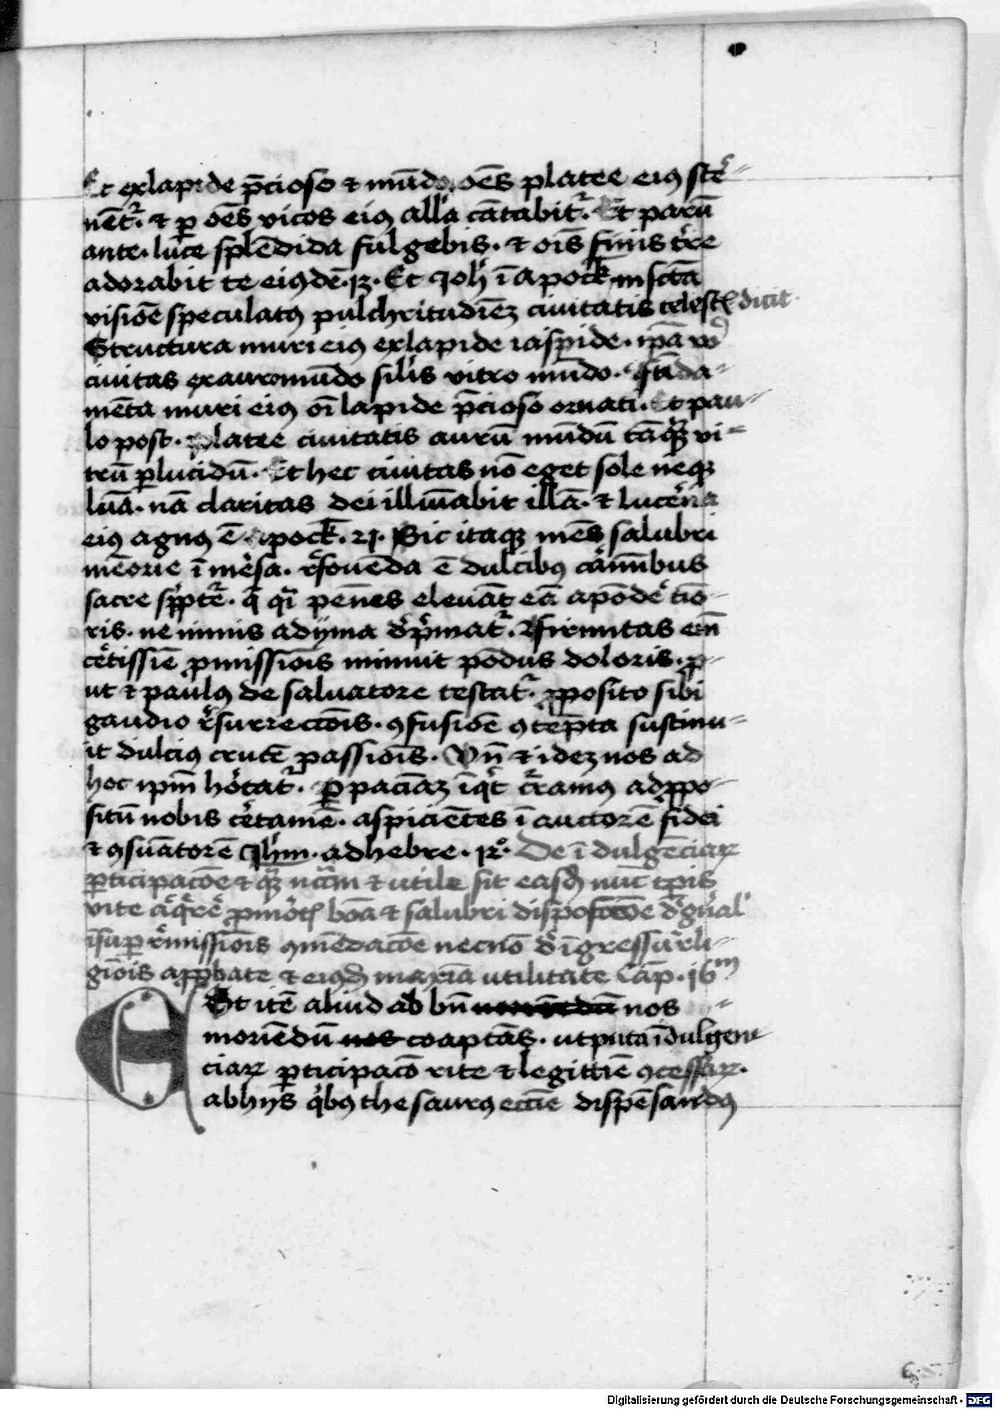 Et ex lapide p̄cioso ⁊ mūdo oēs platee eiꝰ stͤr-
nēt᷑. ⁊ ꝑ oēs vicos eiꝰ all'a cātabit᷑. Et parū
ante. luce splēdida fulgebis. ⁊ oīs finis t're
adorabit te eiꝰdē. 13. Et Joh' ī apock̄ in sctā
visiōe speculatꝰ pulchritudiēꝫ ciuitatis celest' dicit.
Structura muri eiꝰ ex lapide iaspide. ip̄a v̊o
ciuitas ex auro mūdo sil'is vitro mūdo. fūda-
mēta muri eiꝰ oī lapide p̄cioso ornati. Et pau-
lo post. platee ciuitatis aurū mūdū tāqꝫ vi-
trū ꝑlucidū. Et hec ciuitas nō eget sole neqꝫ
luā. nā claritas dei illuīabit illā. ⁊ lucerna
eiꝰ agnꝰ ē apock̄. 21. Sic itaqꝫ mēs salubri
mēorie ī mēsa. r̄fouenda ē dulcibꝰ cāmībus
sacre sp̄pt᷑e. q̄ q̄i pēnes eleuāt eā a pōdē tiō-
ris. ne nimis ad yma dp̄mat᷑. firmitas em̄
c̄tissiē ꝓmissiōis minuit pōdus doloris. ꝓ-
ut ⁊ paulꝰ de saluatore testat᷑. ꝓposito sibi
gaudio r̄surrecciōis. ꝯfusiōe ꝯtēpta sustinu-
it dulciꝰ crucē passiōis. Vn̄ ⁊ idez nos ad
hoc ip̄m hōrtat᷑. ꝑ paciāꝫ īq̇t c̄ramꝰ ad ꝓpo-
sitū nobis c̄tamē. aspiciētes ī auctorē fidei
⁊ ꝯsūatorē Jh'm. ad hebre. 12. De īdulgēciaꝝ
ꝑticipacōe ⁊ qꝫ nc̄m ⁊ utile sit easdē nūc tp̄is
vite aq̄rē ꝓmōtꝭ bōa ⁊ salubri disposicōe
īsuꝑ r̄missiōis ꝯmēdacōe necnō d' īgressu r̄li-
giōis aꝓbate ⁊ eiꝰdē maxīa utilitate Cap̄. 16ᵐ
Et itē aliud ad bn̄ nos
moriēdū coaptās. utputa īdulgen-
ciaꝝ ꝑticipacō rite ⁊ legittīe ꝯcessaꝝ.
ab hijs q̇bꝰ thesaurꝰ eccīe dispēsandꝰ
Digitalisierung gefördert durch die Deutsche Forschungsgemeinschaft - DFG